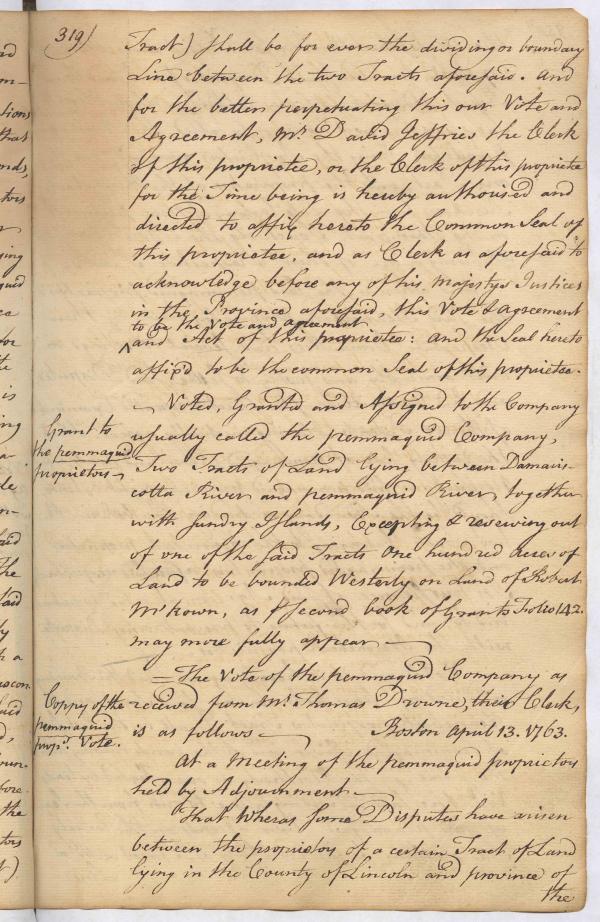 319)
Tract) shall be for ever the dividing or boundary
Line between the two Tracts aforesaid. And
for the better perpetuating this our Vote and
Agreement, Mr. David Jeffries the Clerk
of this proprietee, or the Clerk of this proprietee
for the Time being is hereby authorised and
directed to affix hereto the Common Seal of
this proprietee, and as Clerk as aforesaid to
acknowledge before any of his Majestys Justices
in the Province aforesaid, this Vote & agreement
to be the Vote and agreement
^and Act of this proprietee: and the Seal hereto
affix'd to be the common Seal of this proprietee.
Grant to
the pemmaquid
proprietors
Voted, Granted and Assigned to the Company
usually called the pemmaquid Company,
Two Tracts of Land lying between Damaris-
cotta River and pemmaquid River, together
with sundry Islands, Excepting & reserving out
of one of the said Tracts One hundred Acres of
Land to be bounded Westerly on Land of Robert
McKown, as p second book of Grants Folio 142.
may more fully appear
The Vote of the pemmaquid Company as
Coppy of the
pemmaquid
prop.rs Vote.
received from Mr. Thomas Drowne, their Clerk,
is as follows Boston April 13. 1763.
At a Meeting of the pemmaquid proprietors
held by Adjournment
That Wheras some Disputes have arisen
between the proprietors of a certain Tract of Land
lying in the County of Lincoln and province of
the